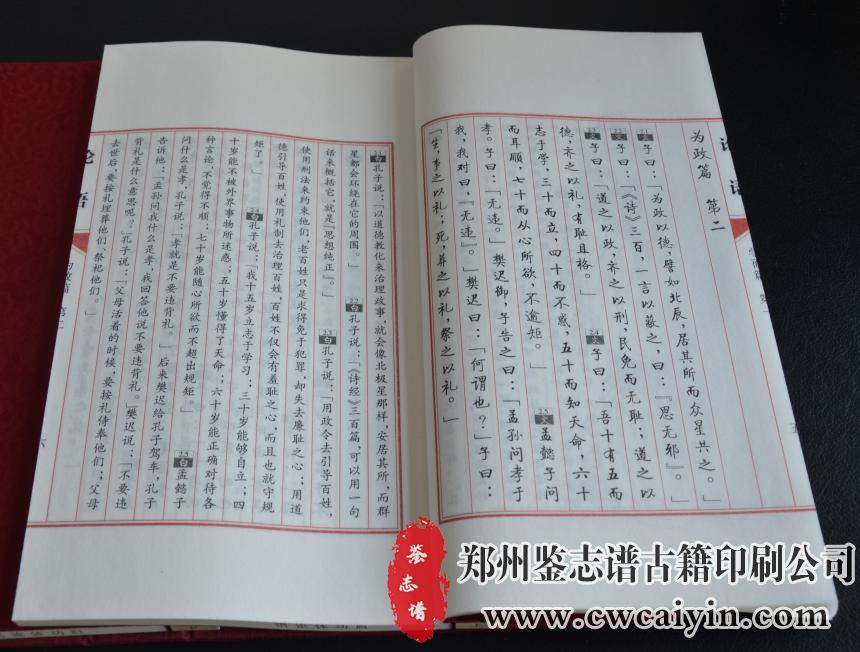 为政篇 第二
2.1 文 子曰：「为政以德，譬如北辰，居其所而众星共之。」
2.2 文 子曰：「《诗》三百，一言以蔽之，曰：『思无邪』。」
2.3 文 子曰：「道之以政，齐之以刑，民免而无耻；道之以
德，齐之以礼，有耻且格。」 2.4 文 子曰：「吾十有五而
志于学，三十而立，四十而不惑，五十而知天命，六十
而耳顺，七十而从心所欲，不逾矩。」 2.5 文 孟懿子问
孝。子曰：「无违。」樊迟御，子告之曰：「孟孙问孝于
我，我对曰，『无违』。」樊迟曰：「何谓也？」子曰：
「生，事之以礼；死，葬之以礼，祭之以礼。」
论语
五
2.1 句 孔子说：「以道德教化来治理政事，就会像北极星那样，安居其所，而群
星都会环绕在它的周围。」 2.2 句 孔子说：「《诗经》三百篇，可以用一句
话来概括它，就是『思想纯正』。」 2.3 句 孔子说：「用政令去引导百姓，
使用刑法来约束他们，老百姓只是求得免于犯罪，却失去廉耻之心；用道
德引导百姓，使用礼制去治理百姓，百姓不仅会有羞耻之心，而且也就守规
矩了。」 2.4 句 孔子说：「我十五岁立志于学习；三十岁能够自立；四
十岁能不被外界事物所迷惑；五十岁懂得了天命；六十岁能正确对待各
种言论，不觉得不顺；七十岁能随心所欲而不超出规矩。」 2.5 句 孟懿子
问什么是孝，孔子说：「孝就是不要违背礼。」后来樊迟给孔子驾车，孔子
告诉他：「孟孙问我什么是孝，我回答他说不要违背礼。」樊迟说：「不要违
背礼是什么意思呢？」孔子说：「父母活着的时候，要按礼侍奉他们；父母
去世后，要按礼埋葬他们、祭祀他们。」
论语
为政篇 第二
六
鉴志谱
郑州鉴志谱古籍印刷公司
www.cwcaiyin.com